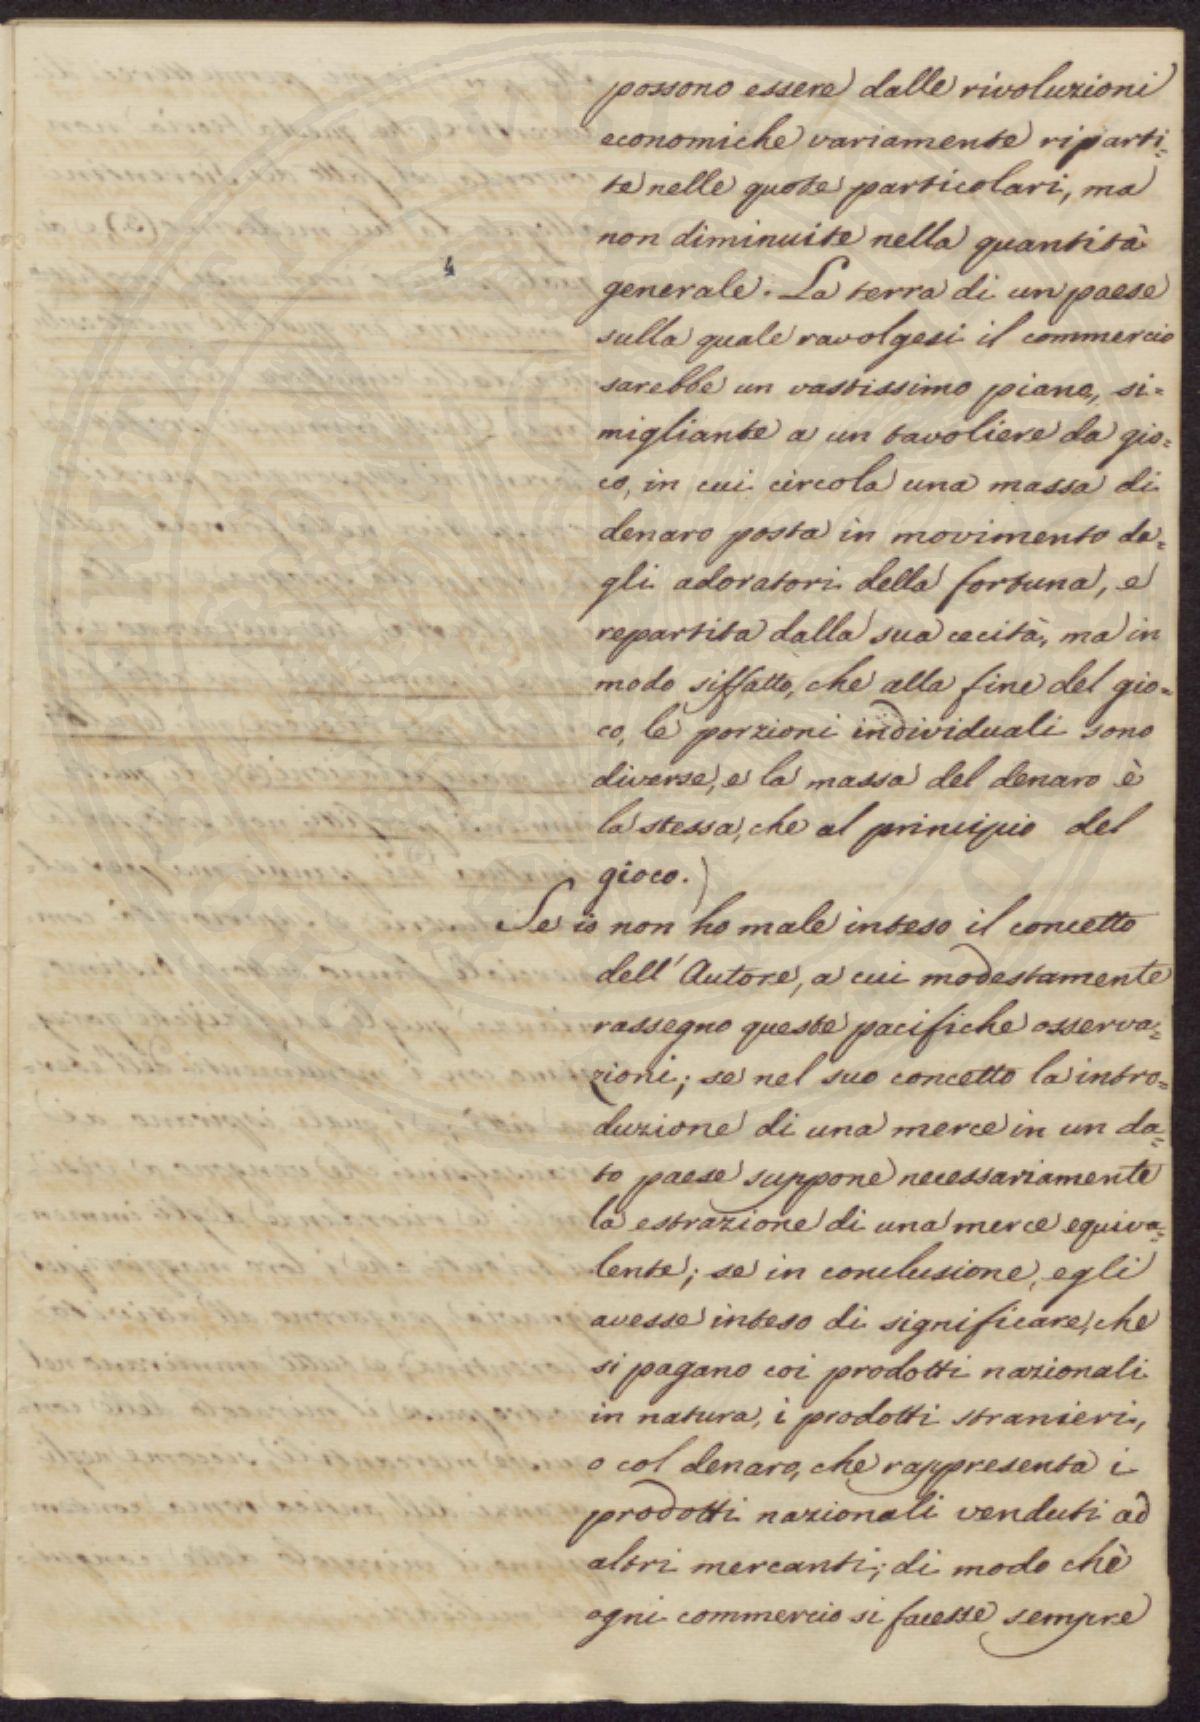 possono essere dalle rivoluzioni
economiche variamente riparti=
te nelle quote particolari, ma
non diminuite nella quantità
4
generale. La terra di un paese
sulla quale ravolgesi il commercio
sarebbe un vastissimo piano, si=
migliante a un tavoliere da gio=
co, in cui circola una massa di
denaro posta in movimento da=
gli adoratori della fortuna, e
repartita dalla sua cecità, ma in
modo siffatto, che alla fine del gio=
co, le porzioni individuali sono
diverse, e la massa del denaro è
la stessa, che al principio del
gioco.)
Se io non ho male inteso il concetto
dell'Autore, a cui modestamente
rassegno queste pacifiche osserva=
zioni; se nel suo concetto la intro=
duzione di una merce in un da=
to paese suppone necessariamente
la estrazione di una merce equiva=
lente; se in conclusione, egli
avesse inteso di significare, che
si pagano coi prodotti nazionali
in natura, i prodotti stranieri,
o col denaro, che rappresenta i
prodotti nazionali venduti ad
altri mercanti; di modo chè
ogni commercio si facesse sempre